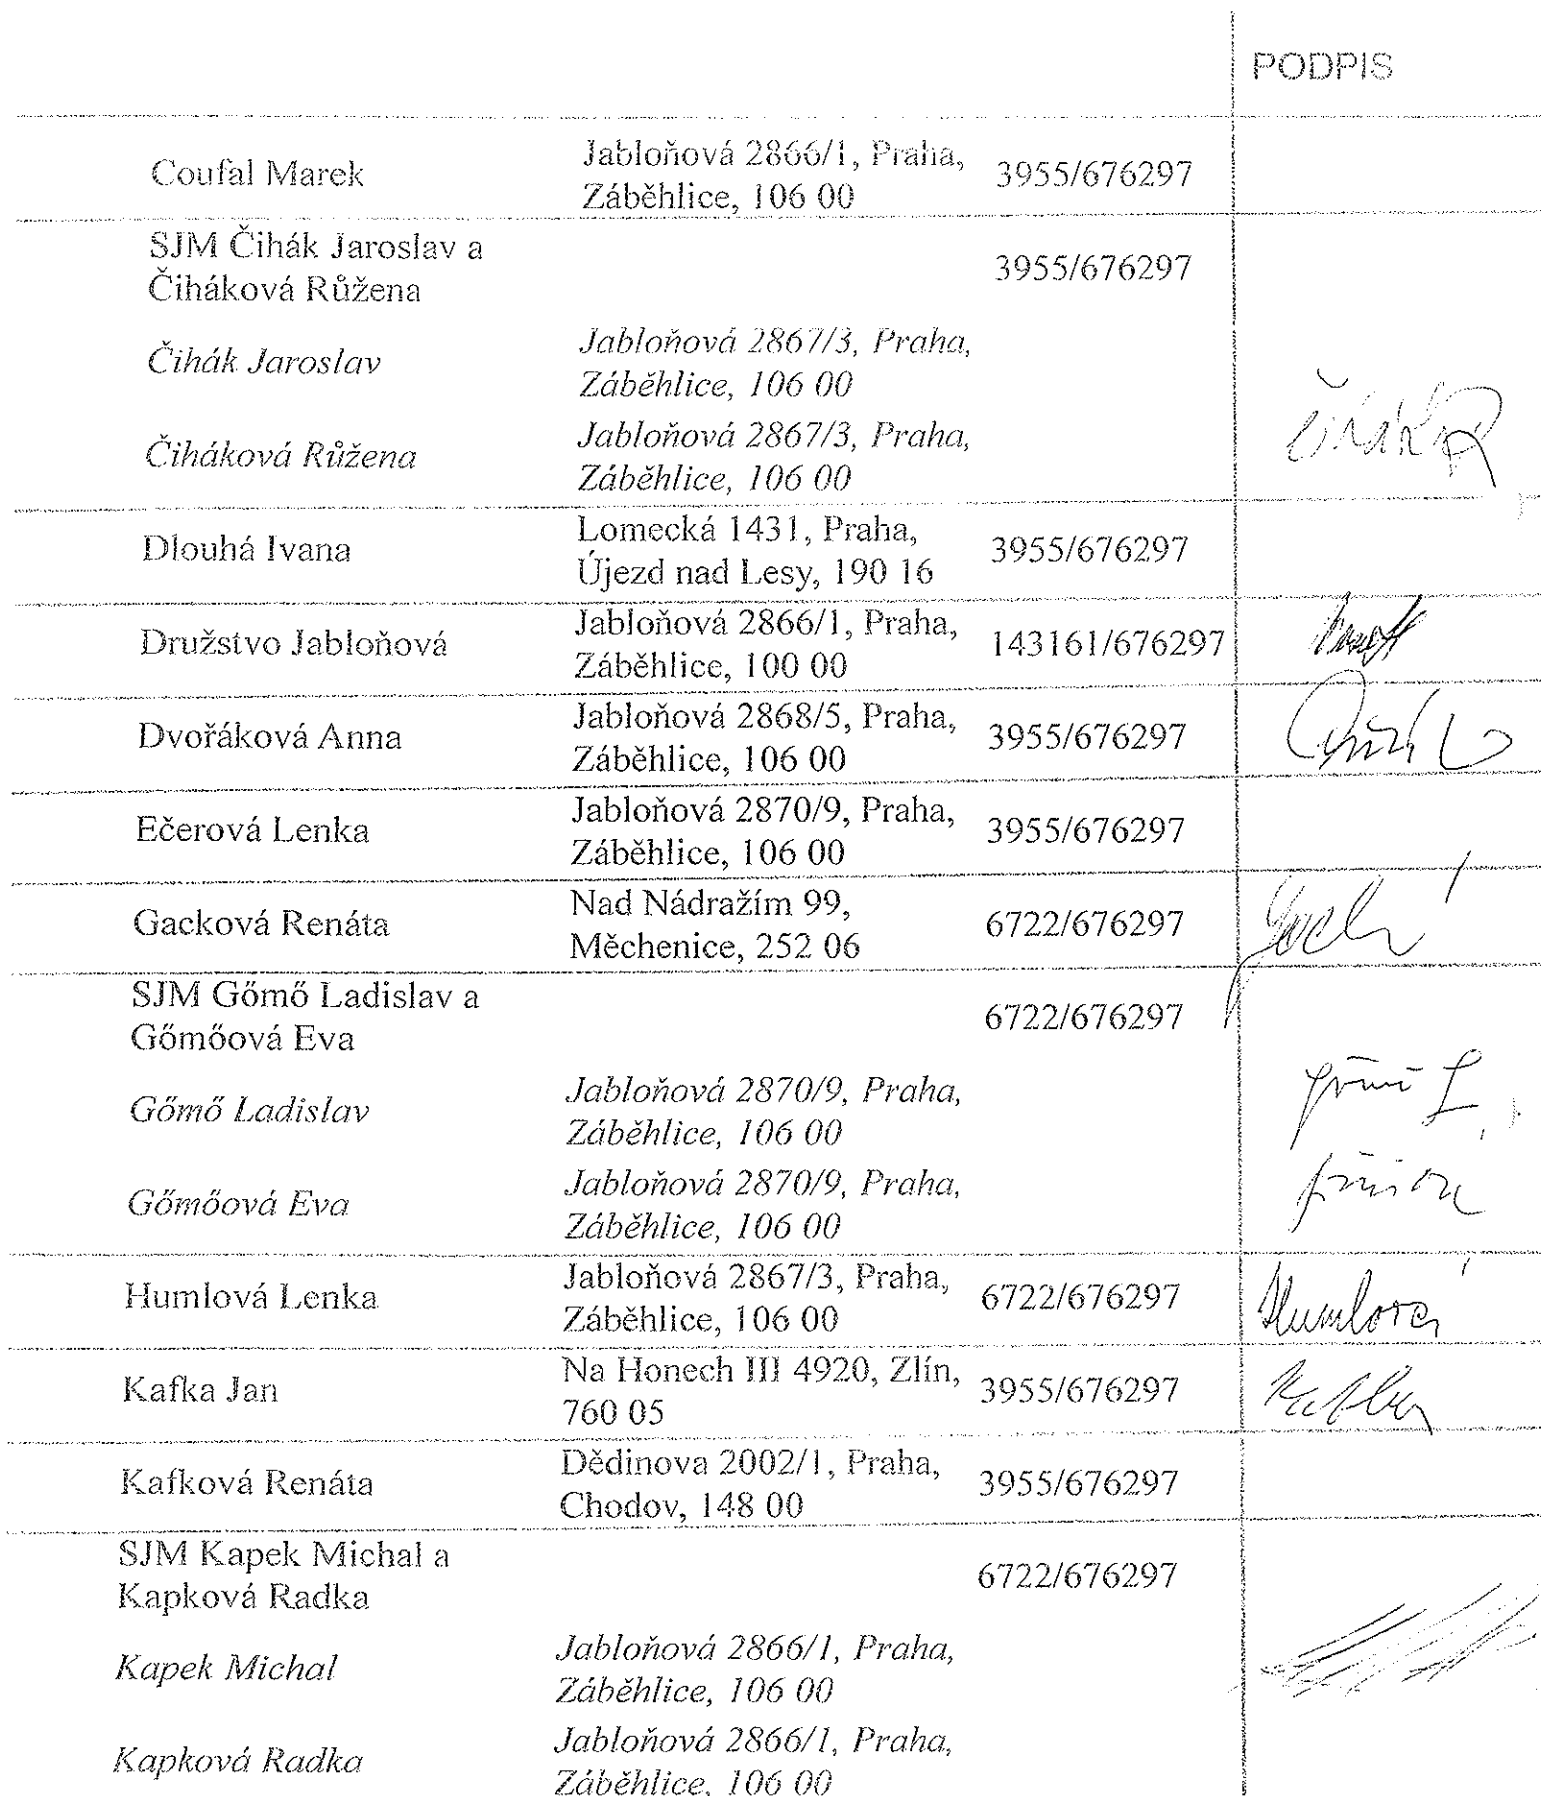 PODPIS
Coufal Marek
Jabloňová 2866/1, Praha,
Záběhlice, 106 00
3955/676297
SJM Čihák Jaroslav a
Čiháková Růžena
3955/676297
Čihák Jaroslav
Jabloňová 2867/3, Praha,
Záběhlice, 106 00
Čiháková Růžena
Jabloňová 2867/3, Praha,
Záběhlice, 106 00
Dlouhá Ivana
Lomecká 1431, Praha,
Újezd nad Lesy, 190 16
3955/676297
Družstvo Jabloňová
Jabloňová 2866/1, Praha,
Záběhlice, 100 00
143161/676297
Dvořáková Anna
Jabloňová 2868/5, Praha,
Záběhlice, 106 00
3955/676297
Ečerová Lenka
Jabloňová 2870/9, Praha,
Záběhlice, 106 00
3955/676297
Gacková Renáta
Nad Nádražím 99,
Měchenice, 252 06
6722/676297
SJM Gőmő Ladislav a
Gőmőová Eva
6722/676297
Gőmő Ladislav
Jabloňová 2870/9, Praha,
Záběhlice, 106 00
Gőmőová Eva
Jabloňová 2870/9, Praha,
Záběhlice, 106 00
Humlová Lenka
Jabloňová 2867/3, Praha,
Záběhlice, 106 00
6722/676297
Humlová
Kafka Jan
Na Honech III 4920, Zlín,
760 05
3955/676297
Kafka
Kafková Renáta
Dědinova 2002/1, Praha,
Chodov, 148 00
3955/676297
SJM Kapek Michal a
Kapková Radka
6722/676297
Kapek Michal
Jabloňová 2866/1, Praha,
Záběhlice, 106 00
Kapková Radka
Jabloňová 2866/1, Praha,
Záběhlice, 106 00